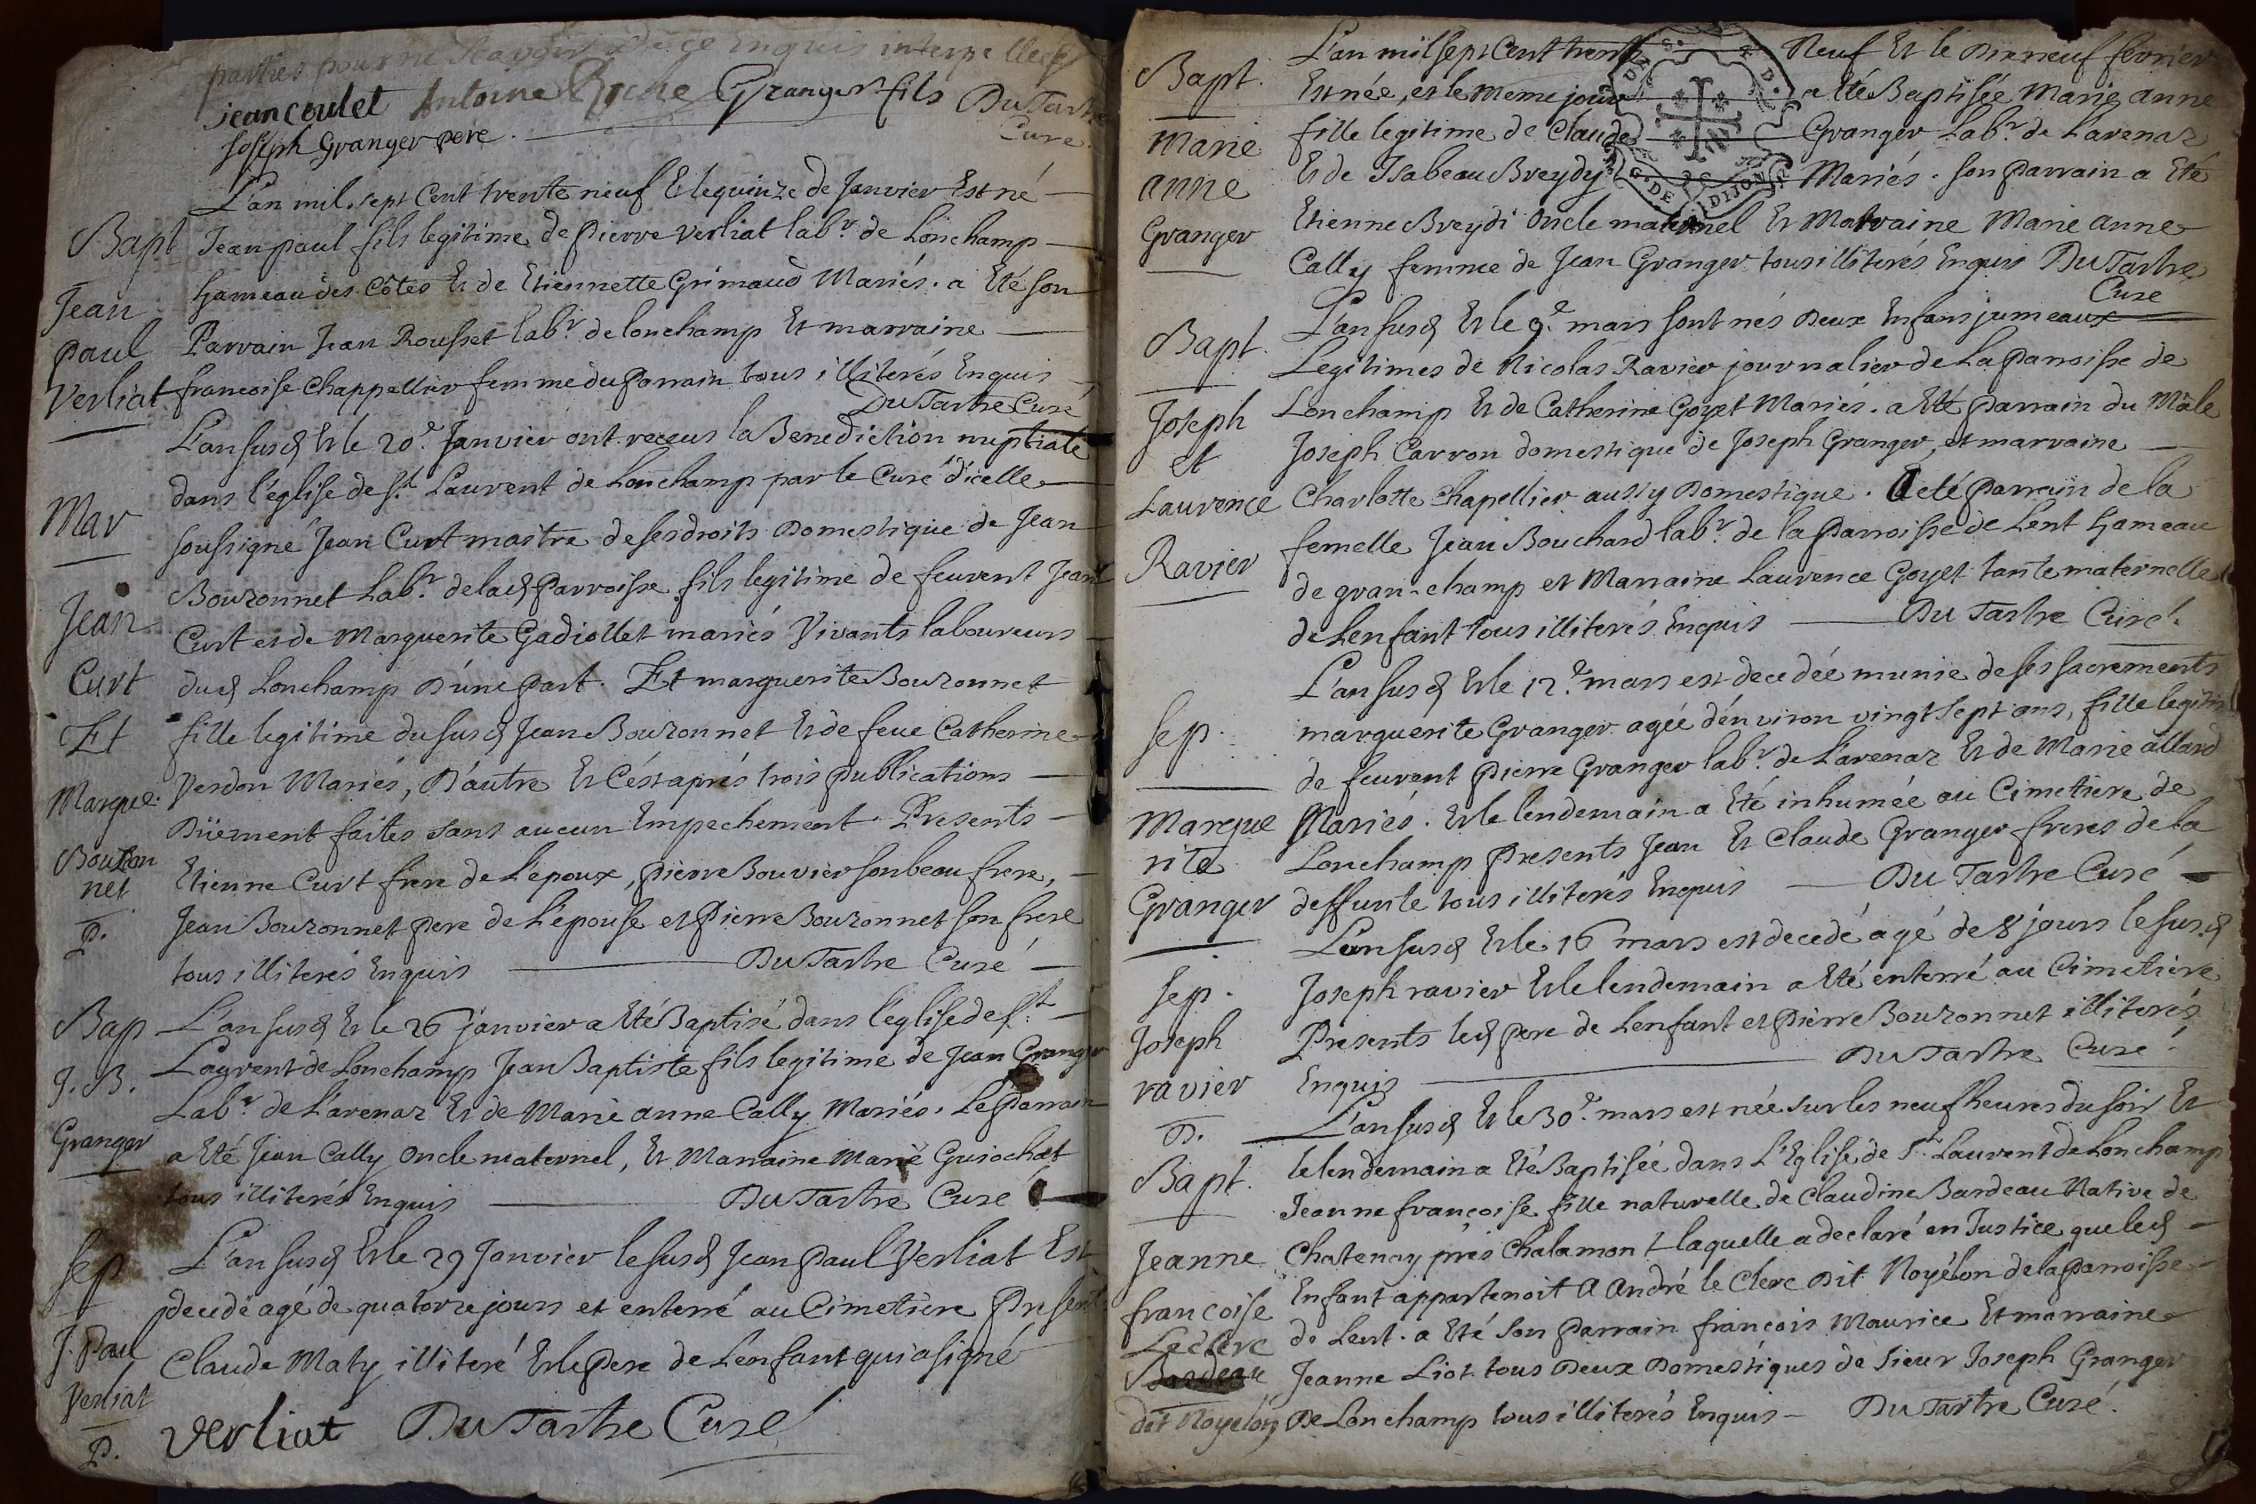 parties pour ne sçavoir de ce enquis interpellees
jean coulet Antoine Riche Granger fils Du Tartre
Curé
joseph Granger pere
L'an mil sept Cent trente neuf Et le quinze de Janvier Est né
Bapt
Jean paul fils legitime de pierre verliat lab.r de Lonchamp
hameau des Côtes Et de Etiennette Grimaud Mariés. a Eté son
Jean
Parrain Jean Rousset lab.r de lonchamp Et marraine
paul
Verliat
francoise Chappellier femme du parrain tous illiterés Enquis
Du Tartre Curé
L'an susd Et le 20.e Janvier ont receus la Benediction nuptiale
dans l'église de S.t Laurent de Lonchamp par le Curé d'icelle
Mar
soussigné Jean Curt maitre de ses droits Domestique de Jean
Bouronnet Lab.r de lad parroisse fils legitime de feuvent Jean
Jean
Curt et de Marguerite Gadiollet mariés Vivants laboureurs
Curt
dud Lonchamp D'une part. Et marguerite Bouronnet
Et
fille legitime du susd Jean Bouronnet Et de feue Catherine
Margue.
Verdon Mariés, D'autre Et C'est aprés trois publications
Düement faites sans aucun Empechement. Presents
Bouron
net
Etienne Curt frere de L'epoux, pierre Bouvier son beau frere,
P.
Jean Bouronnet pere de L'epouse et pierre Bouronnet son frere
tous illiterés Enquis Du Tartre Curé
Bap
L'an susd Et le 26 janvier a Eté Baptisé dans l'église de S.t
J. B.
Laurent de Lonchamp Jean Baptiste fils legitime de Jean Granger
Lab.r de L'arenaz Et de Marie anne Cally Mariés. Le Parrain
Granger
a Eté Jean Cally Oncle maternel, Et Marraine Marie Guiochet
tous illiterés Enquis Du Tartre Curé
Sep
L'an susd Et le 29 Janvier le susd Jean paul Verliat Est
decedé agé de quatorze jours et enterré au Cimetiere Presents
J. Paul
Claude Maty illiteré Et le Pere de Lenfant qui a signé
Verliat
P.
verliat Du Tartre Curé
L'an mil sept Cent trente Neuf Et le Dixneuf février
Bapt.
Est née, et le meme jour a Eté Baptisée Marie anne
Marie
fille legitime de Claude Granger Lab.r de L'arenaz
anne
Et de Isabeau Breydy Mariés. son parrain a Eté
Granger
Etienne Breydi Oncle maternel Et Marraine Marie anne
Cally femme de Jean Granger tous illiterés Enquis Du Tartre
Curé
L'an susd Et le 9.e mars sont nés Deux Enfans jumeaux
Bapt.
Legitimes de Nicolas Ravier journalier de La Parroisse de
Joseph
Lonchamp Et de Catherine Goyet Mariés. a Eté parrain du Mâle
et
Joseph Carron domestique de Joseph Granger, et marraine
Laurence
Charlotte Chapellier aussy Domestique. A eté Parrain de la
Ravier
femelle Jean Bouchard lab.r de la Parroisse de Lent hameau
de gran-champ et Marraine Laurence Goyet tante maternelle
de Lenfant tous illiterés Enquis Du Tartre Curé.
L'an susd Et le 12.e mars est decedée munie de ses sacrements
Sep.
marguerite Granger agée d'environ vingt sept ans, fille legitime
de feuvent pierre Granger lab.r de L'arenaz Et de Marie allard
Margue
rite
Mariés. Et le lendemain a Eté inhumée au Cimetiere de
Lonchamp Presents Jean Et Claude Granger freres de la
Granger
deffunte tous illiterés Enquis Du Tartre Curé
L'an susd Et le 16 mars est decedé agé de 8 jours le susd
Sep.
Joseph ravier Et le lendemain a Eté enterré au Cimetiere
Joseph
Presents led pere de Lenfant et pierre Bouronnet illiterés
ravier
Enquis Du Tartre Curé
P.
L'an susd Et le 30.e mars est née sur les neuf heures du soir Et
Bapt.
le lendemain a Eté Baptisée dans L'Eglise de S.t Laurent de Lonchamp
Jeanne françoise fille naturelle de Claudine Bardeau Native de
Jeanne
Chatenay prés Chalamont laquelle a declaré en Justice que led
francoise
Enfant appartenoit A André le Clerc Dit Noyélon de la Parroisse
Leclerc
de Lent. a Eté son parrain francois Maurice Et marraine
Bardeau
Jeanne Liot tous Deux Domestiques de sieur Joseph Granger
dit Noyelon
De Lonchamp tous illiterés Enquis Du Tartre Curé.
G. DE DIJON